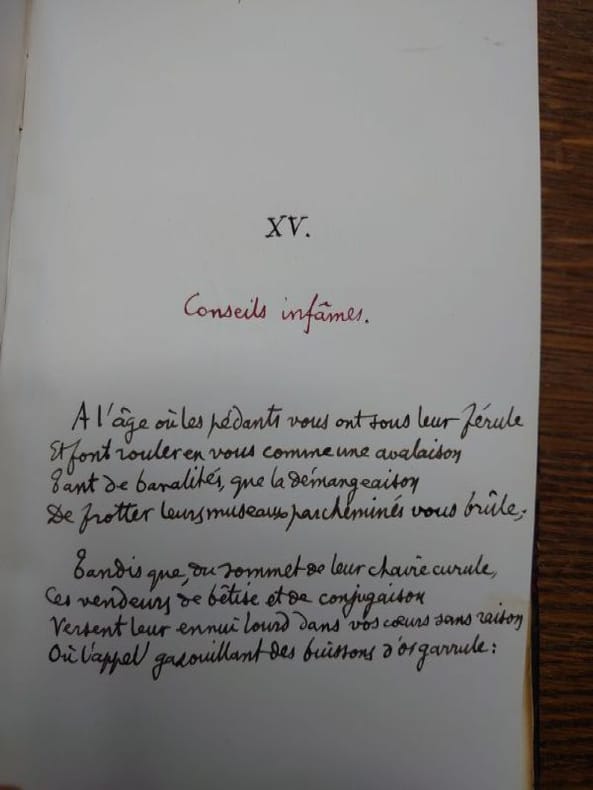 XV.
Conseils infâmes.
A l'âge où les pédants vous ont sous leur férule
Et font rouler en vous comme une avalaison
Tant de banalités, que la démangeaison
De frotter leurs museaux parcheminés vous brûle;
Tandis que, du sommet de leur chaire curule,
Ces vendeurs de bêtise et de conjugaison
Versent leur ennui lourd dans vos cœurs sans raison
Où l'appel gazouillant des buissons d'or garrule: